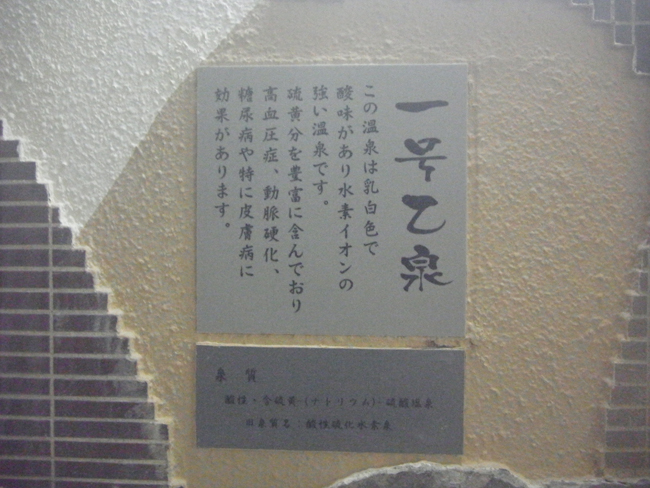 一号乙泉
この温泉は乳白色で
酸味があり水素イオンの
強い温泉です。
硫黄分を豊富に含んでおり
高血圧症、動脈硬化、
糖尿病や特に皮膚病に
効果があります。
泉質
酸性・含硫黄-(ナトリウム)-硫酸塩泉
旧泉質名：酸性硫化水素泉